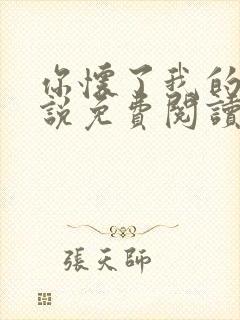 你懷了我的
說免費閱讀
張天師